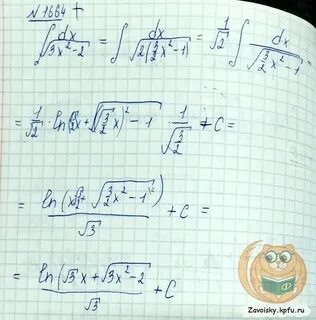 N 1664 †
∫ dx / √(3x²-2) = ∫ dx / √(2(3/2 x²-1)) = 1/√2 ∫ dx / √(3/2 x²-1) =
= 1/√2 · ln(√(3/2) x + √((√(3/2) x)² - 1)) · 1/√(3/2) + C =
= ln(x√(3/2) + √(3/2 x² - 1)) / √3 + C =
= ln(√3 x + √(3x²-2)) / √3 + C
Zavoisky.kpfu.ru